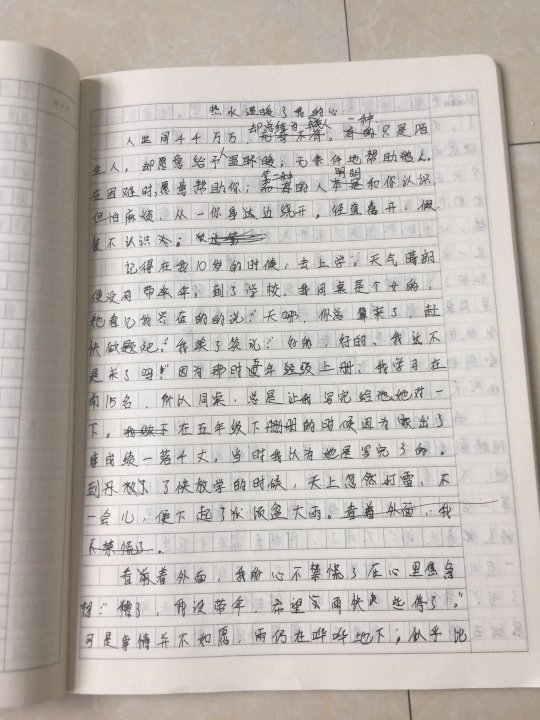 热水温暖了我的心
却总结为两种人 一种
人世间千千万万，有的只是陌
生人，却愿意给予人温暖，无条件地帮助他人，
在因难时，愿意帮助你；第二种的人明明是和你认识，
但怕麻烦，从一你身边边绕开，径直离开，假
装不认识人；
记得在我10岁的时候，去上学，天气晴朗
便没有带来伞，到了学校，我同桌是个女的，
她看见我只在的的说："天哪，你总算来了，赶
快做题吧。"我笑了笑说："好的，好的，我这不
是来了吗？"因为那时五年级级上册，我学习在
前15名，所以同桌，总是让我写完给他她对一
下。在五年级下册的时候因为家出了
事成绩一落千丈，当时我认为她是写完了的。
到来放学的时候，天上忽然打雷，不
一会儿，便下起了倾盆大雨。看着外面，我
不禁慌了。
看着外面，我的心不禁慌了在心里焦急
想："糟了，我没带伞，希望雨快些停了。"
可是事情并不如愿，雨仍在哗哗地下，似乎比